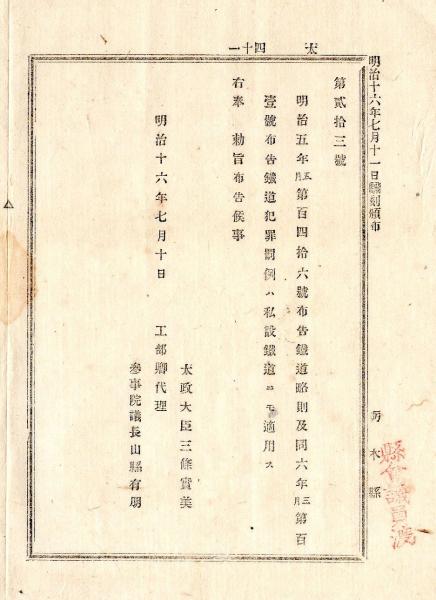 明治十六年七月十一日飜刻頒布
縣
太 四十一
第貳拾三號
明治五年五月第百四拾六號布告鐵道略則及同六年三月第百
壹號布告鐵道犯罪罰例ハ私設鐵道ニモ適用ス
右奉 勅旨布告候事
明治十六年七月十日
太政大臣三條實美
工部卿代理
參事院議長山縣有朋